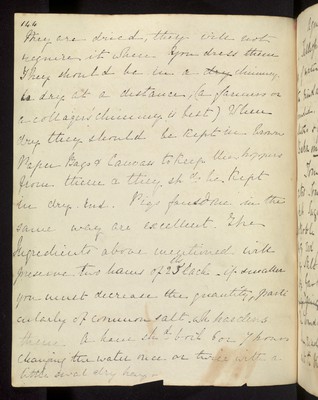 144
they are dried, they will not
require it when you dress them
They should be in a dry chimney,
to dry at a distance, (a farmers or
a cottagers chimney is best) When
dry they should be kept in brown
Paper Bags & Canvas to keep the hoppers
from them & they shd be kept
in dry. Pigs faces done in the
same way are excellent. The
Ingredients above mentioned will
preserve two hams of each - if smaller
you must decrease the quantity, parti
cularly of common salt.
them. A ham shd boil 6 or 7 hours
changing the water once or twice with a
little sweet dry hay.